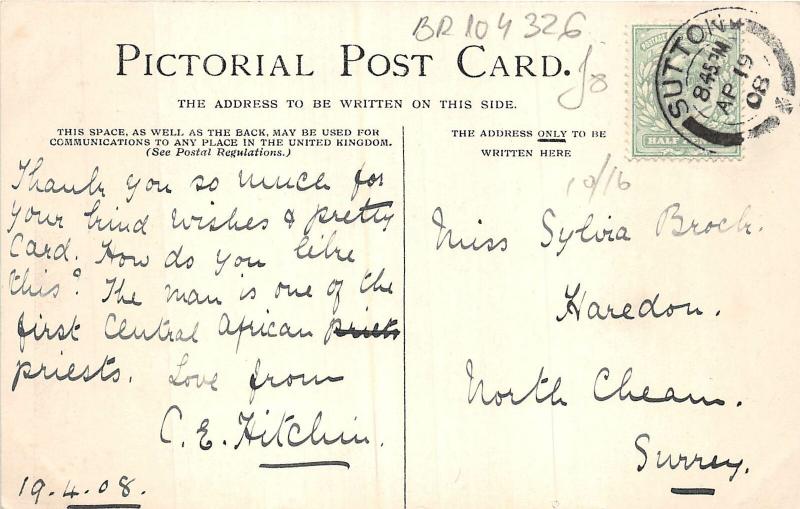 BR104326
PICTORIAL POST CARD.
THE ADDRESS TO BE WRITTEN ON THIS SIDE.
THIS SPACE, AS WELL AS THE BACK, MAY BE USED FOR
COMMUNICATIONS TO ANY PLACE IN THE UNITED KINGDOM.
(See Postal Regulations.)
Thank you so much for
your kind wishes & pretty
Card. How do you like
this? The man is one of the
first Central African priets
priests. Love from
C. E. Hitchin.
19.4.08.
THE ADDRESS ONLY TO BE
WRITTEN HERE
10/16
Miss Sylvia Brock.
Haredon.
North Cheam.
Surrey.
HALF PENNY
SUTTON
8.45 PM
AP 19
08